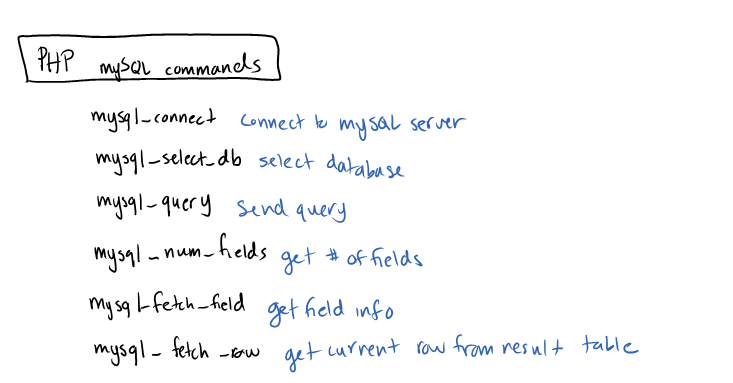 PHP mySQL commands
mysql_connect connect to mysql server
mysql_select_db select database
mysql_query send query
mysql_num_fields get # of fields
mysql_fetch_field get field info
mysql_fetch_row get current row from result table